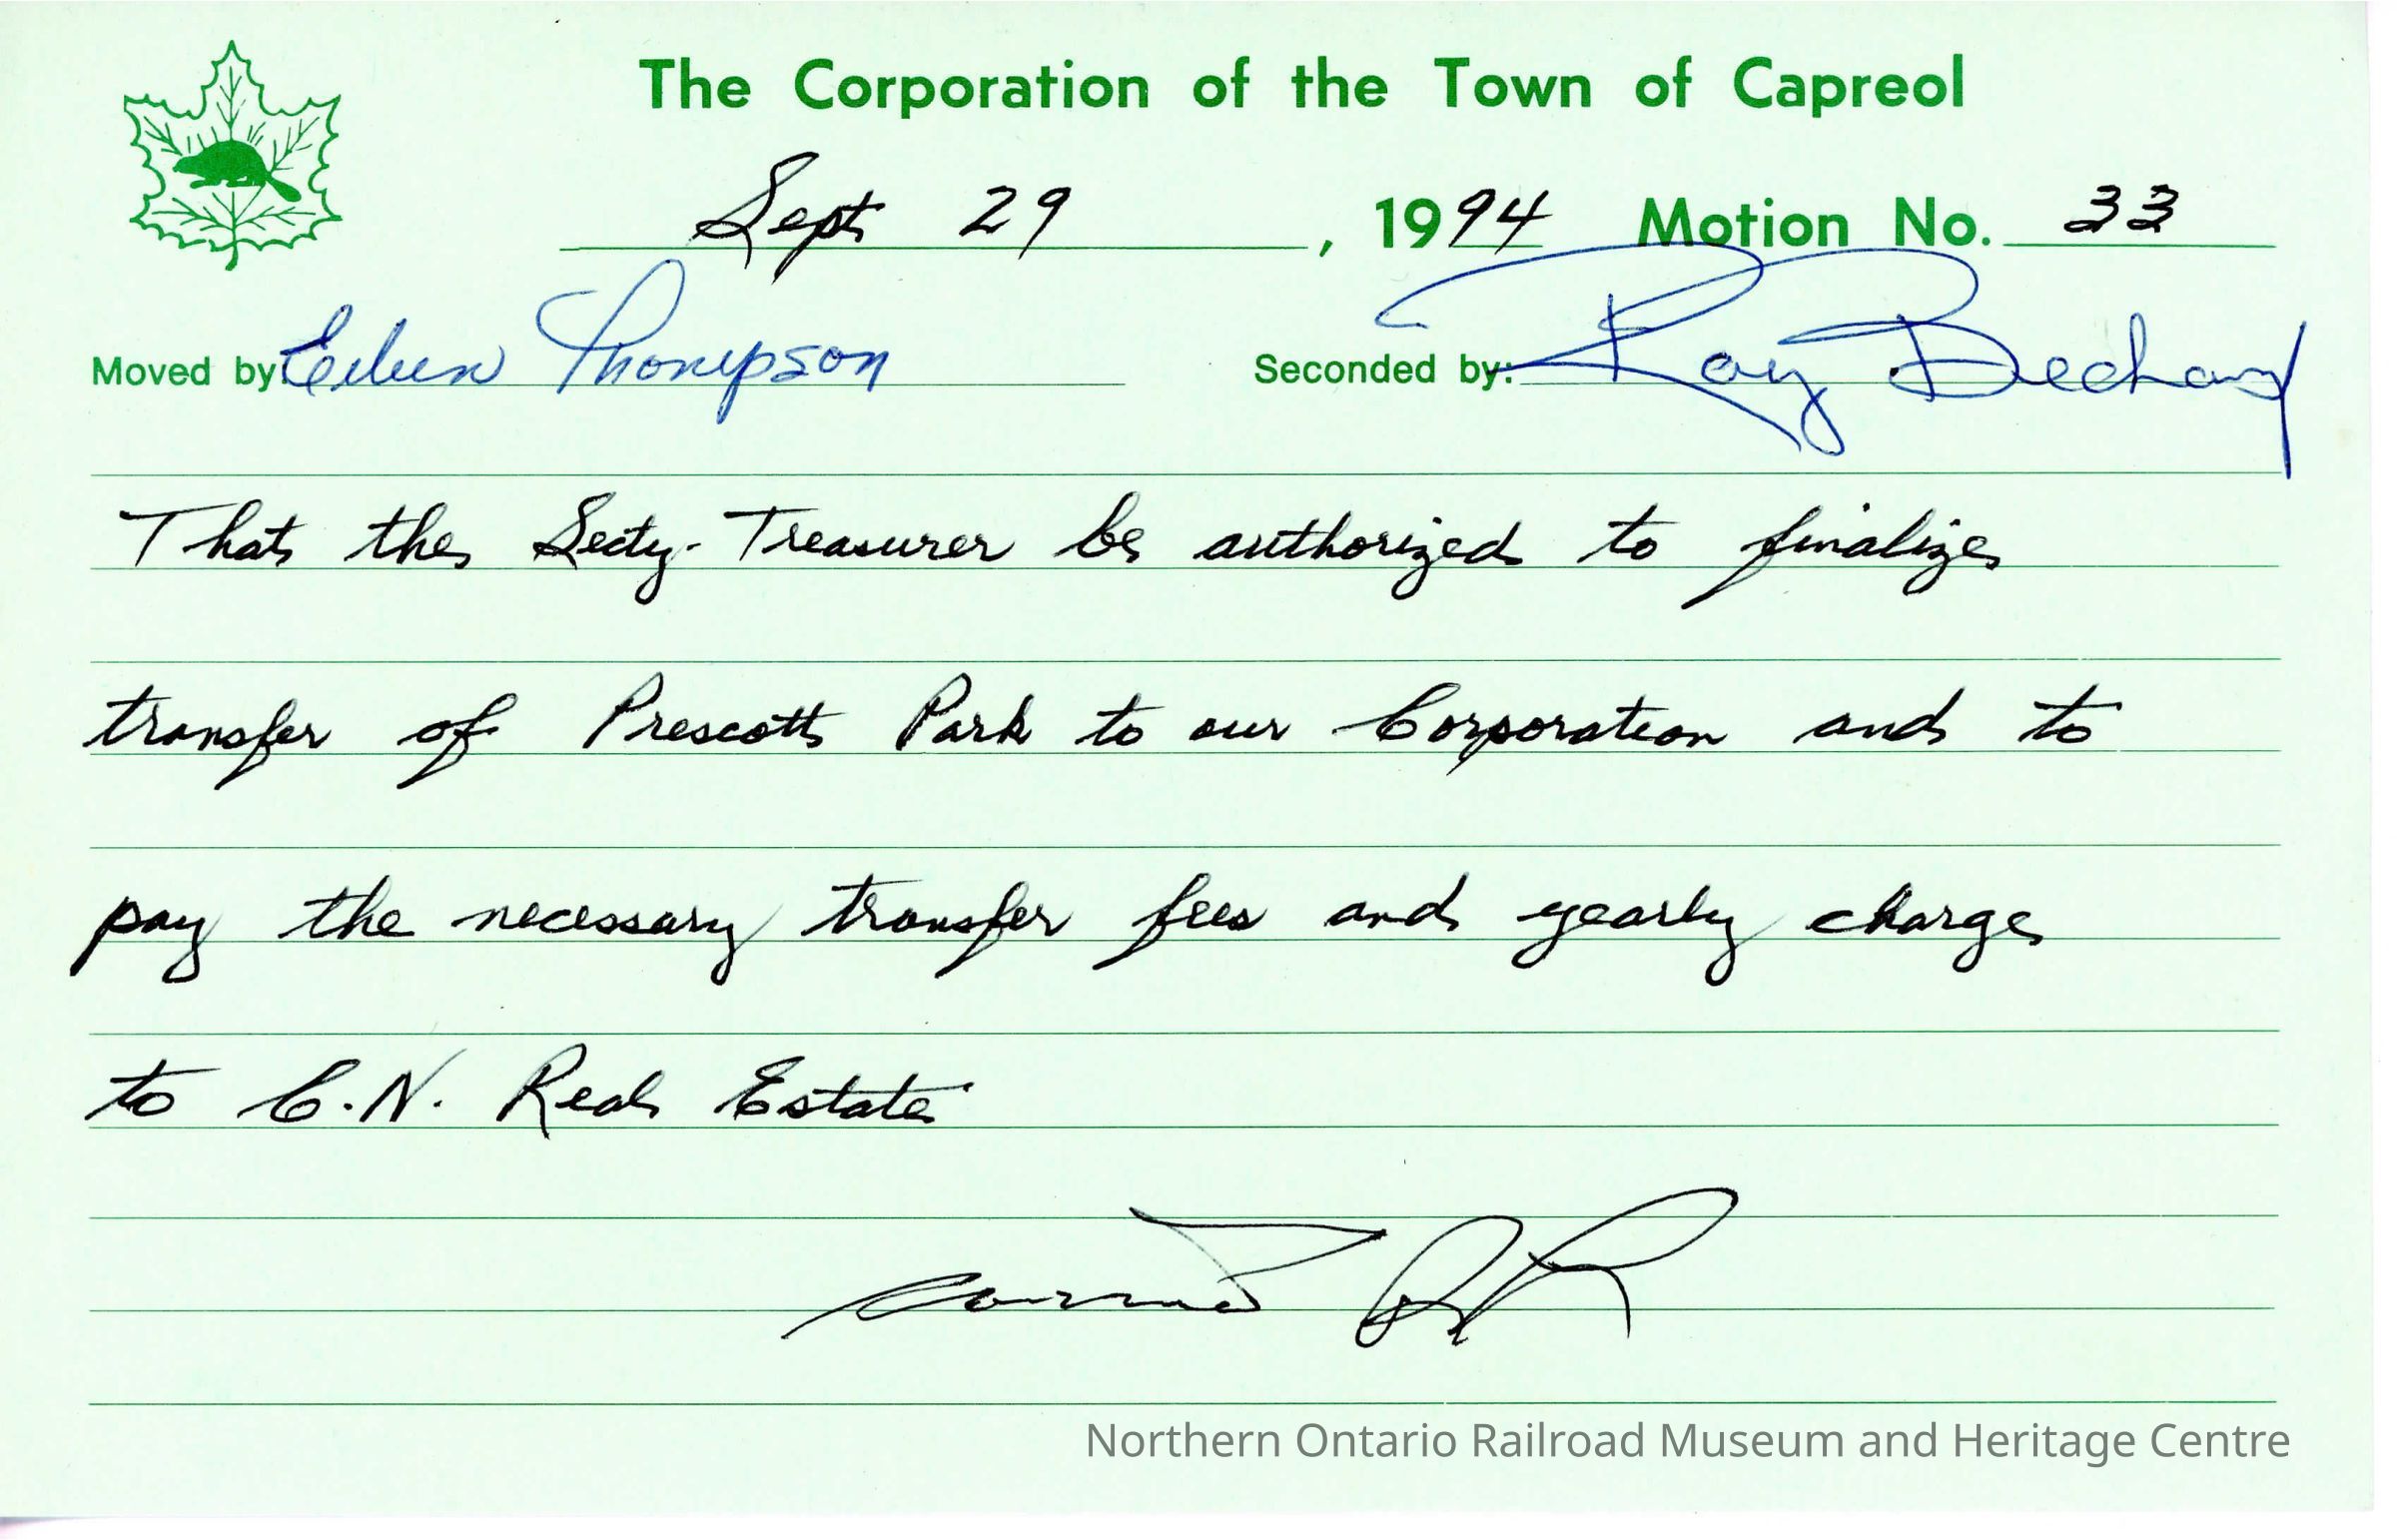 The Corporation of the Town of Capreol
Sept 29, 1994 Motion No. 33
Moved by: Eileen Thompson Seconded by: Ray Bechard
That the Secty-Treasurer be authorized to finalize
transfer of Prescott Park to our Corporation and to
pay the necessary transfer fees and yearly charge
to C.N. Real Estate
Northern Ontario Railroad Museum and Heritage Centre